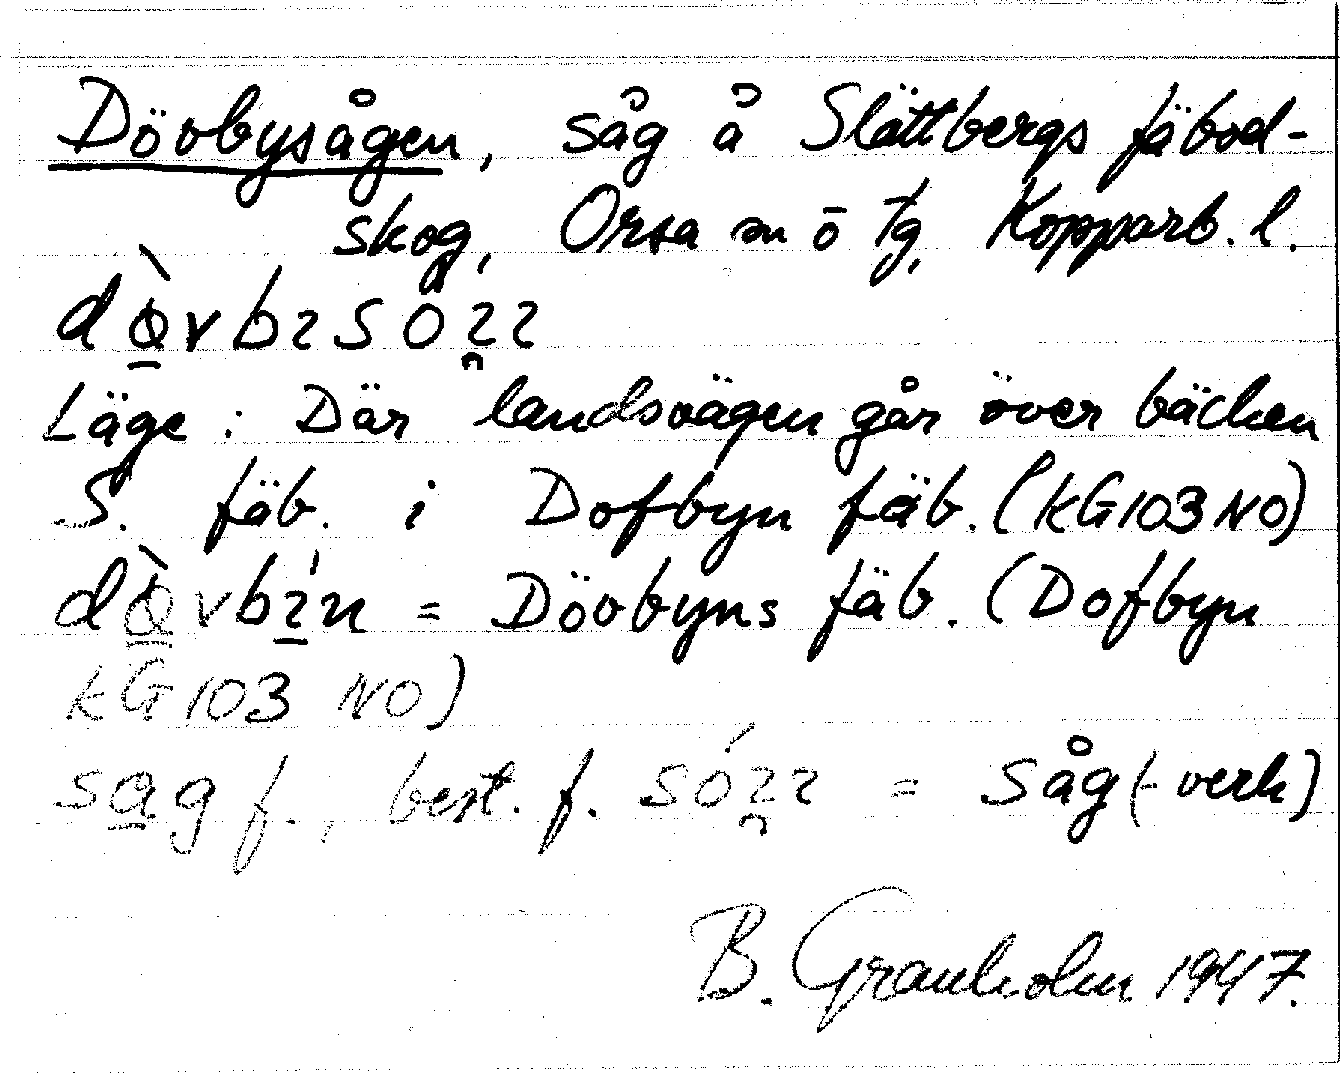 Dövbysågen, såg å Slättbergs fäbod-
skog, Orsa sn ö tg, Kopparb. l.
Läge: Där landsvägen går över bäcken
S. fäb. i Dofbyn fäb. (KG103 NO)
= Dövbyns fäb. (Dofbyn
KG103 NO)
sag f., best. f. = såg(-verk)
B. Granholm 1947.